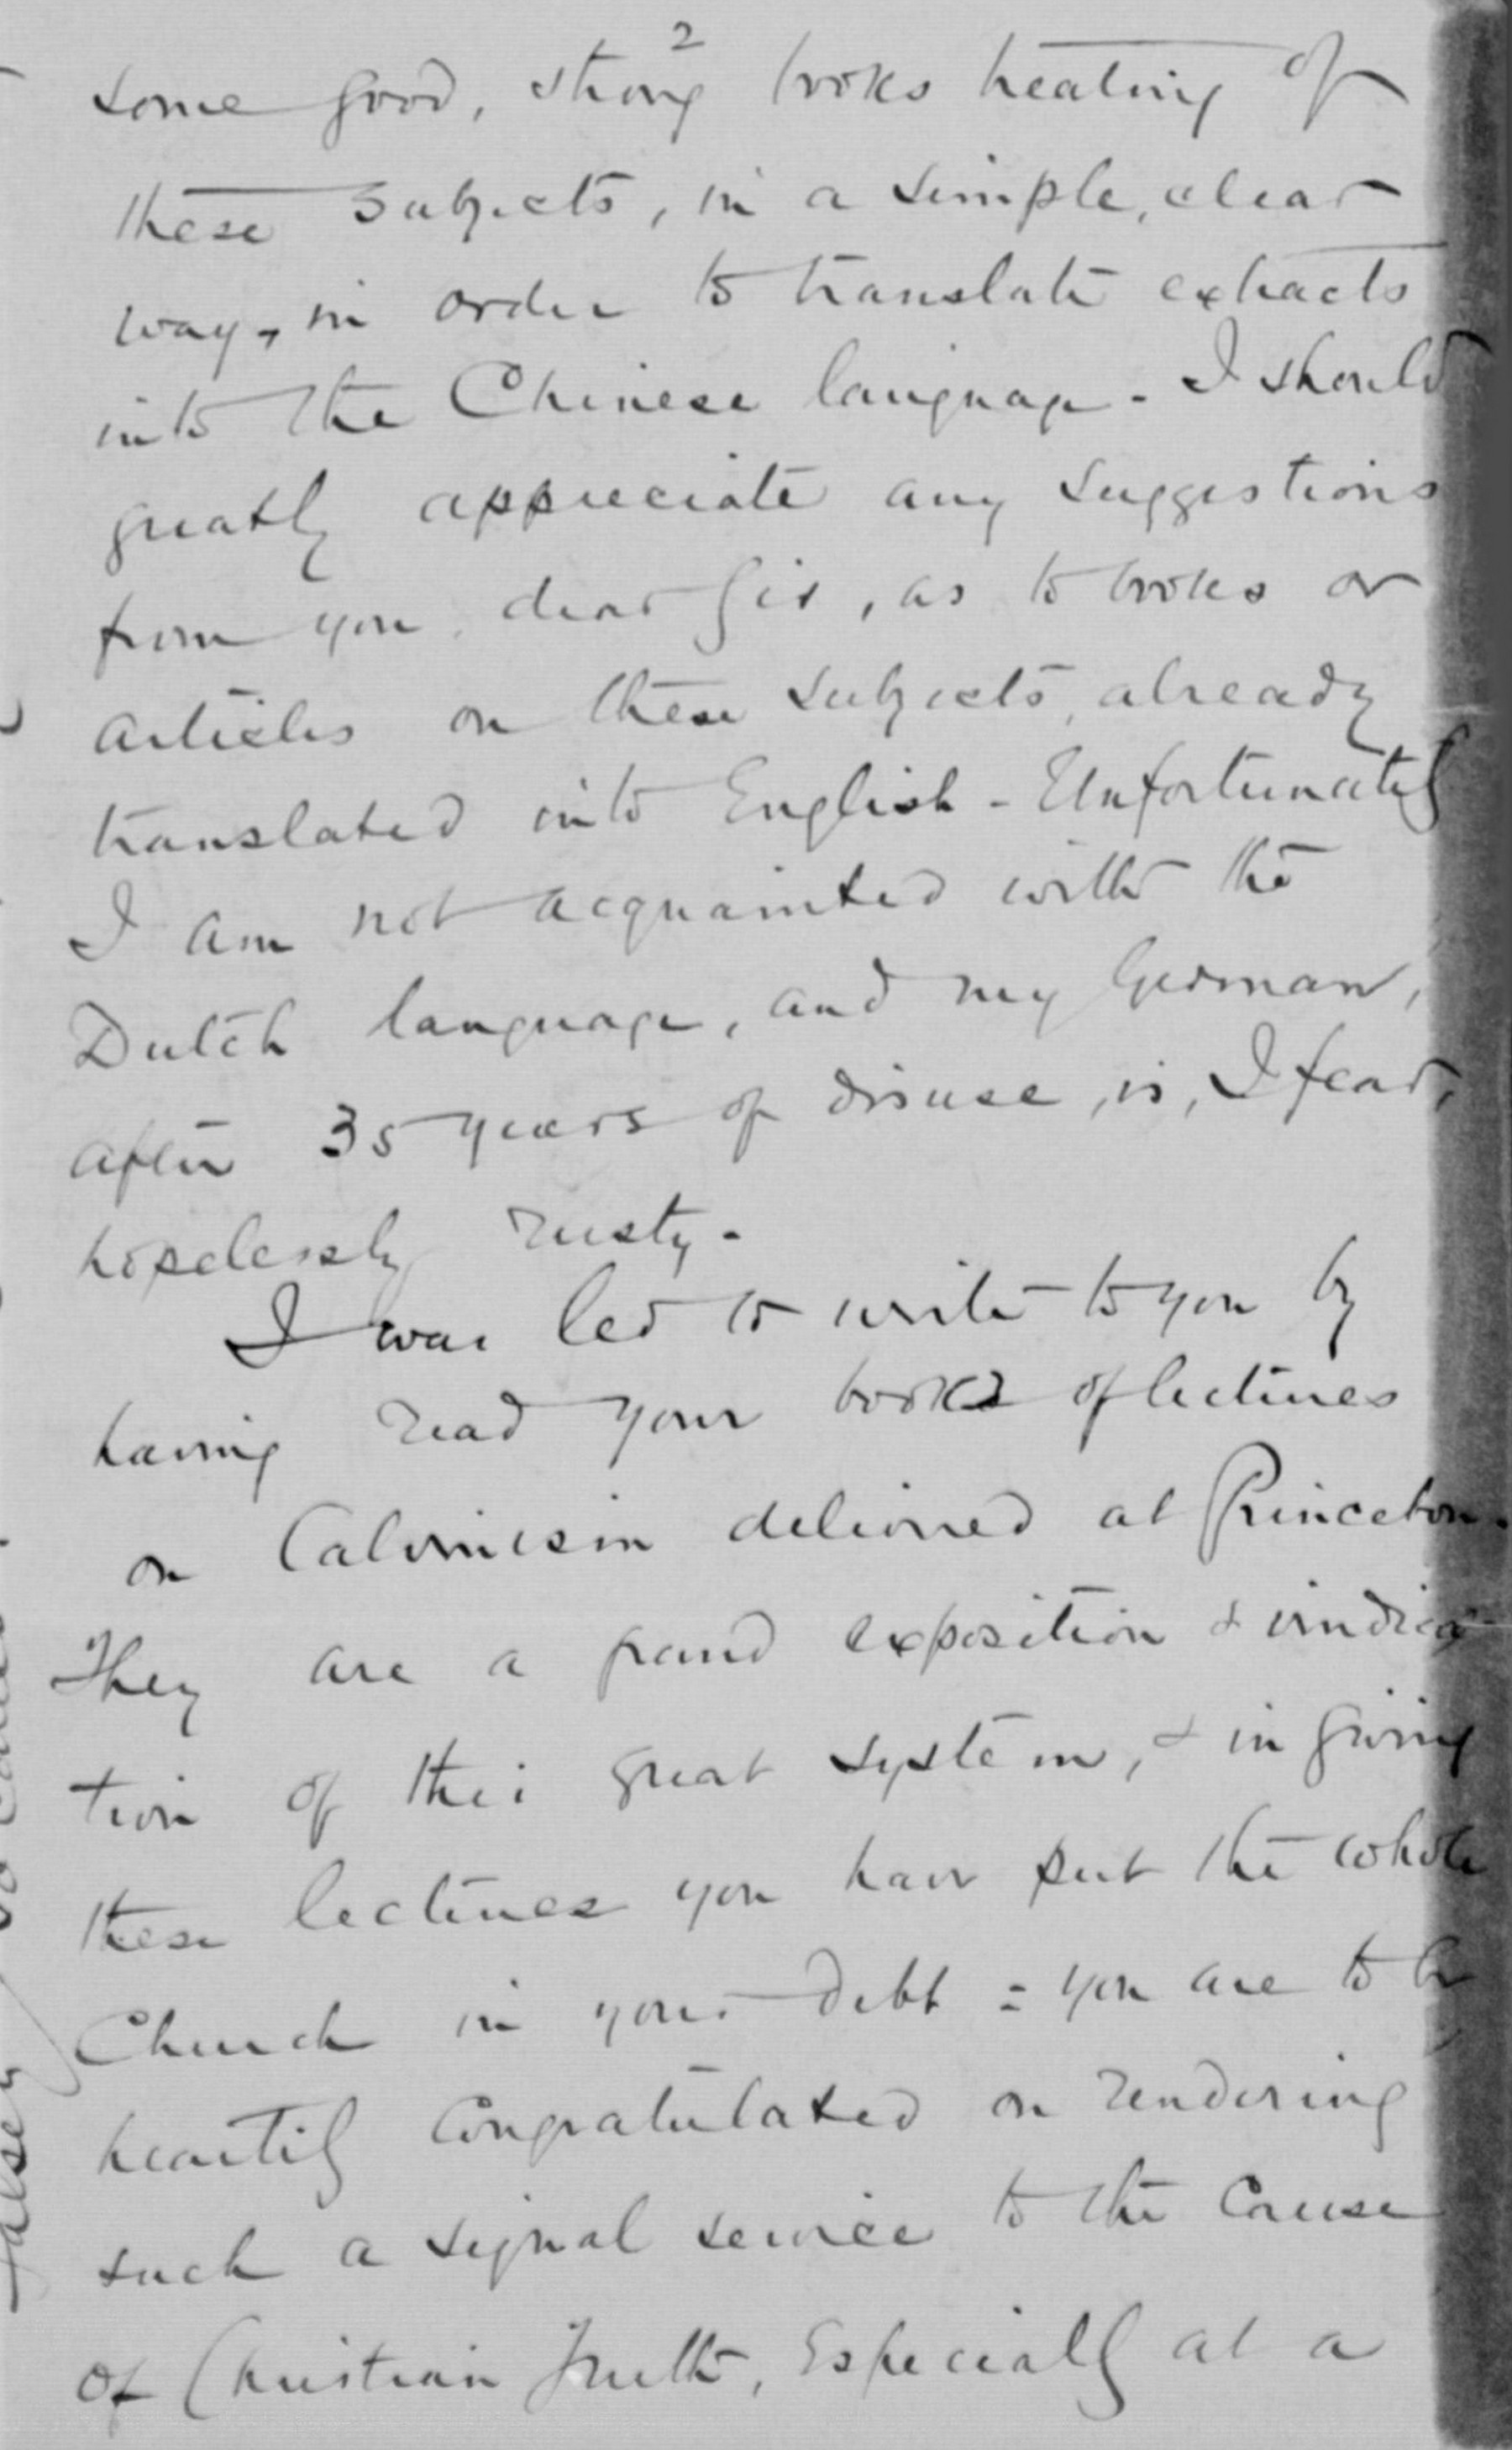 2
some good, strong books treating of
these subjects, in a simple, clear
way, in order to translate extracts
into the Chinese language - I should
greatly appreciate any suggestions
from you, dear Sir, as to books or
articles on these subjects, already
translated into English - Unfortunately
I am not acquainted with the
Dutch language, and my German,
after 35 years of disuse, is, I fear,
hopelessly rusty -
I was led to write to you by
having read your book of lectures
on Calvinism delivered at Princeton.
They are a grand exposition & vindica-
tion of this great system, & in giving
these lectures you have put the whole
Church in your debt = you are to be
heartily congratulated on rendering
such a signal service to the Cause
of Christian Truth, Especially at a